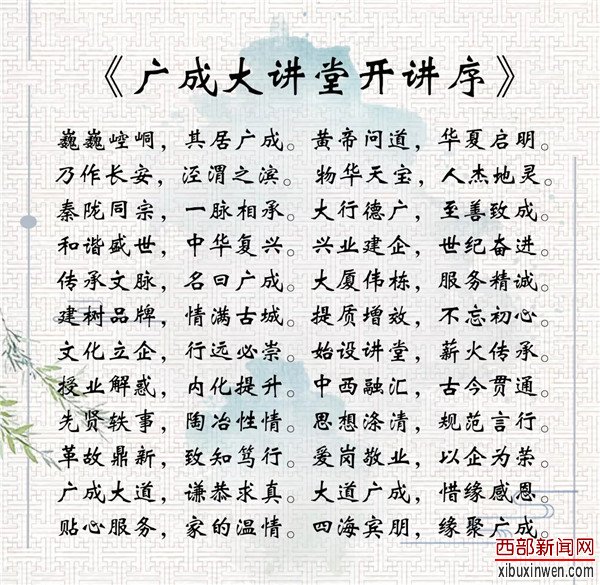 《广成大讲堂开讲序》
巍巍崆峒，其居广成。黄帝问道，华夏启明。
乃作长安，泾渭之滨。物华天宝，人杰地灵。
秦陇同宗，一脉相承。大行德广，至善致成。
和谐盛世，中华复兴。兴业建企，世纪奋进。
传承文脉，名曰广成。大厦伟栋，服务精诚。
建树品牌，情满古城。提质增效，不忘初心。
文化立企，行远必崇。始设讲堂，薪火传承。
授业解惑，内化提升。中西融汇，古今贯通。
先贤轶事，陶冶性情。思想涤清，规范言行。
革故鼎新，致知笃行。爱岗敬业，以企为荣。
广成大道，谦恭求真。大道广成，惜缘感恩。
贴心服务，家的温情。四海宾朋，缘聚广成。
西部新闻网
xibuxinwen.com